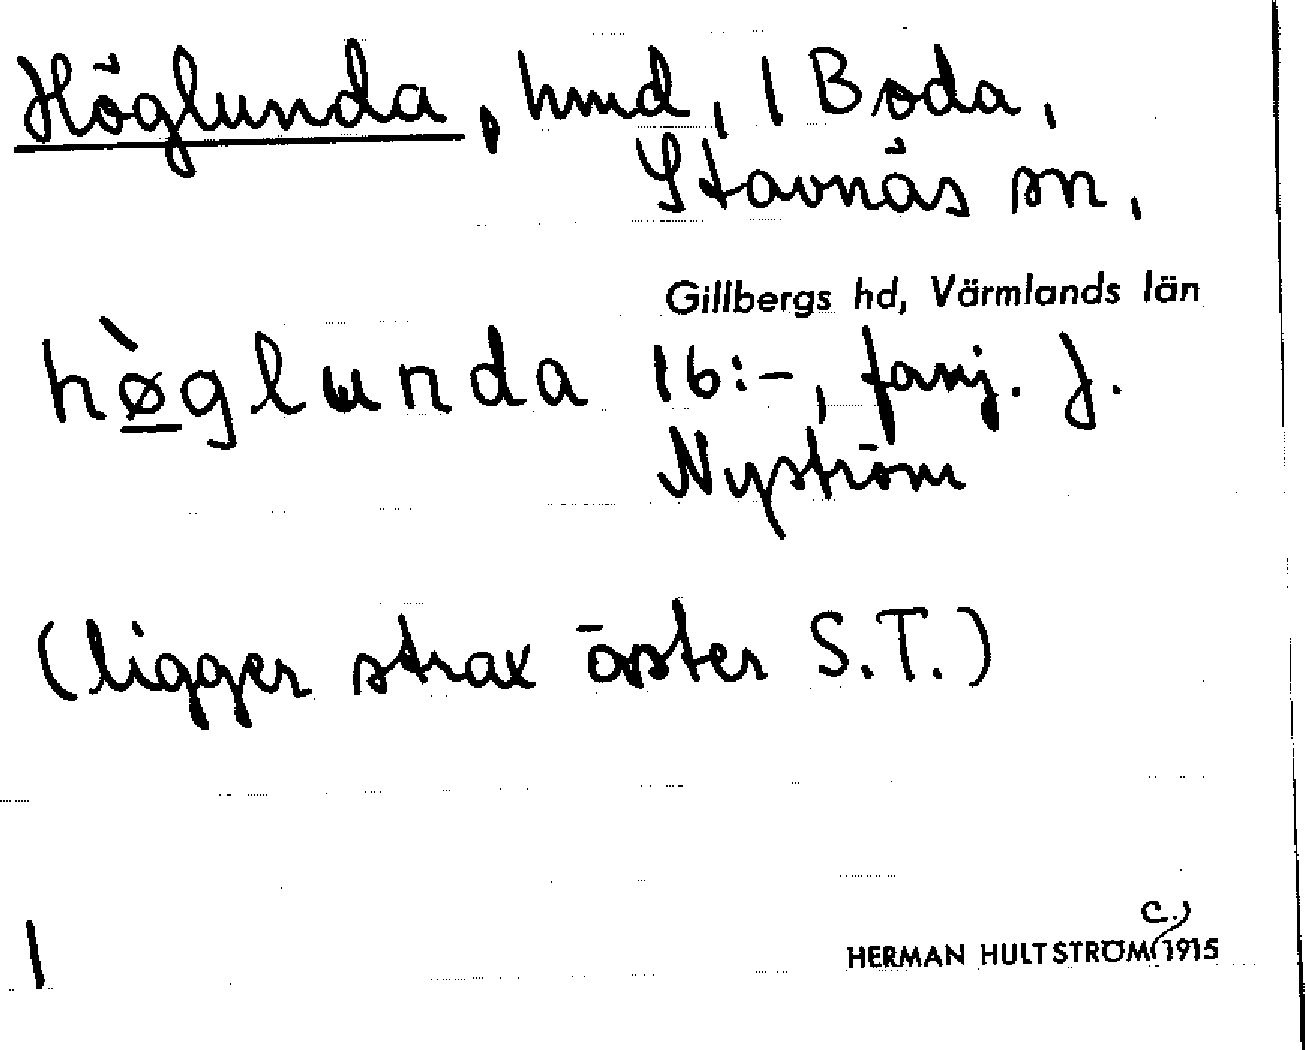 Höglunda, hmd, 1 Boda,
Stavnäs sn,
Gillbergs hd, Värmlands län
hø̀glunda 16:-, fanj. J.
Nyström
(ligger strax öster S.T.)
1
c.)
HERMAN HULTSTRÖM 1915